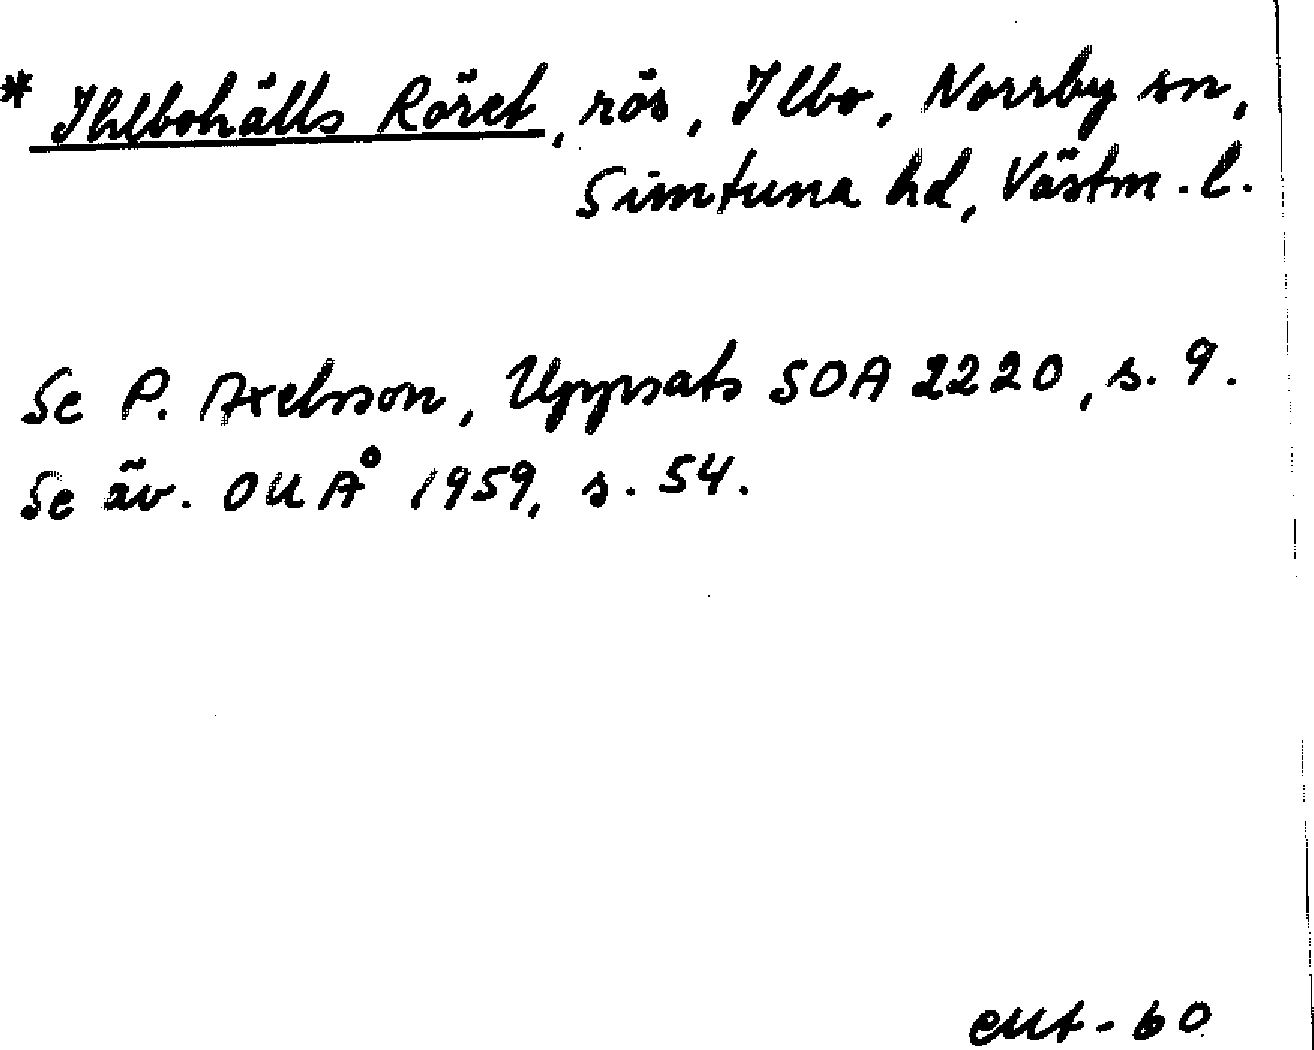 * Ihlbohälls Röret, rös, Ilbo, Norrby sn,
Simtuna hd, Västm. l.
Se P. Axelsson, Uppsats SOA 2220, s. 9.
Se äv. OUÅ 1959, s. 54.
-60